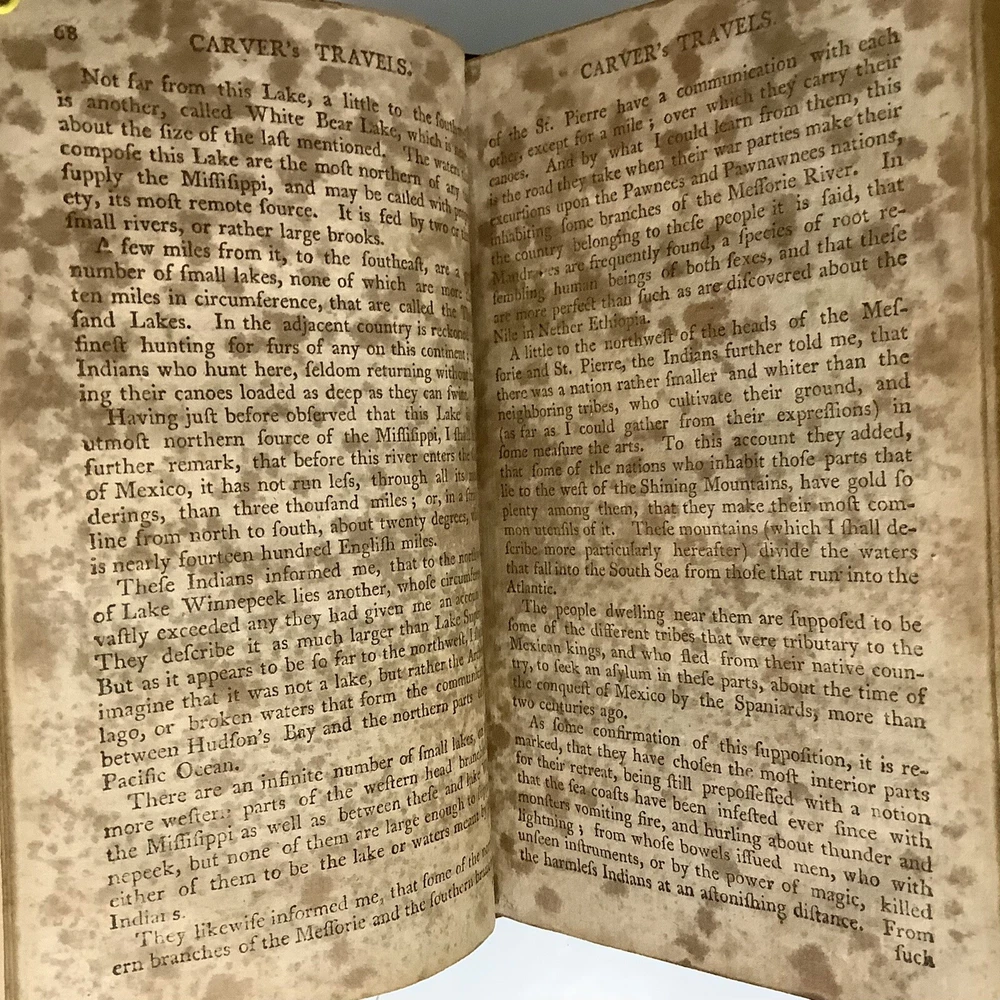 68
CARVER's TRAVELS.
Not far from this Lake, a little to the
is another, called White Bear Lake, which is
about the ſize of the laſt mentioned. The waters
compoſe this Lake are the moſt northern of any
ſupply the Miſſiſippi, and may be called with
ety, its moſt remote ſource. It is fed by two or
ſmall rivers, or rather large brooks.
A few miles from it, to the ſoutheaſt, are a
number of ſmall lakes, none of which are more
ten miles in circumference, that are called the
ſand Lakes. In the adjacent country is
fineſt hunting for furs of any on this continent;
Indians who hunt here, ſeldom returning
ing their canoes loaded as deep as they can
Having juſt before obſerved that this Lake
utmoſt northern ſource of the Miſſiſippi, I
further remark, that before this river enters the
of Mexico, it has not run leſs, through all its
derings, than three thouſand miles; or, in a
line from north to ſouth, about twenty degrees,
is nearly fourteen hundred Engliſh miles.
Theſe Indians informed me, that to the
of Lake Winnepeek lies another, whoſe
vaſtly exceeded any they had given me an
They deſcribe it as much larger than Lake
But as it appears to be ſo far to the northweſt, I
imagine that it was not a lake, but rather the
lago, or broken waters that form the
between Hudſon's Bay and the northern parts
Pacific Ocean.
There are an infinite number of ſmall lakes,
more weſtern parts of the weſtern head
the Miſſiſippi as well as between theſe and
nepeek, but none of them are large enough to
either of them to be the lake or waters meant
Indians.
They likewiſe informed me, that ſome of the
ern branches of the Meſſorie and the ſouthern
CARVER's TRAVELS.
of the St. Pierre have a communication with each
other, except for a mile; over which they carry their
canoes. And by what I could learn from them, this
is the road they take when their war parties make their
excurſions upon the Pawnees and Pawnawnees nations,
inhabiting ſome branches of the Meſſorie River. In
the country belonging to theſe people it is ſaid, that
Mandrakes are frequently found, a ſpecies of root re-
ſembling human beings of both ſexes, and that theſe
are more perfect than ſuch as are diſcovered about the
Nile in Nether Ethiopia.
A little to the northweſt of the heads of the Meſ-
ſorie and St. Pierre, the Indians further told me, that
there was a nation rather ſmaller and whiter than the
neighboring tribes, who cultivate their ground, and
(as far as I could gather from their expreſſions) in
ſome meaſure the arts. To this account they added,
that ſome of the nations who inhabit thoſe parts that
lie to the weſt of the Shining Mountains, have gold ſo
plenty among them, that they make their moſt com-
mon utenſils of it. Theſe mountains (which I ſhall de-
ſcribe more particularly hereafter) divide the waters
that fall into the South Sea from thoſe that run into the
Atlantic.
The people dwelling near them are ſuppoſed to be
ſome of the different tribes that were tributary to the
Mexican kings, and who fled from their native coun-
try, to ſeek an aſylum in theſe parts, about the time of
the conqueſt of Mexico by the Spaniards, more than
two centuries ago.
As ſome confirmation of this ſuppoſition, it is re-
marked, that they have choſen the moſt interior parts
for their retreat, being ſtill prepoſſeſſed with a notion
that the ſea coaſts have been infeſted ever ſince with
monſters vomiting fire, and hurling about thunder and
lightning; from whoſe bowels iſſued men, who with
unſeen inſtruments, or by the power of magic, killed
the harmleſs Indians at an aſtoniſhing diſtance. From
ſuch